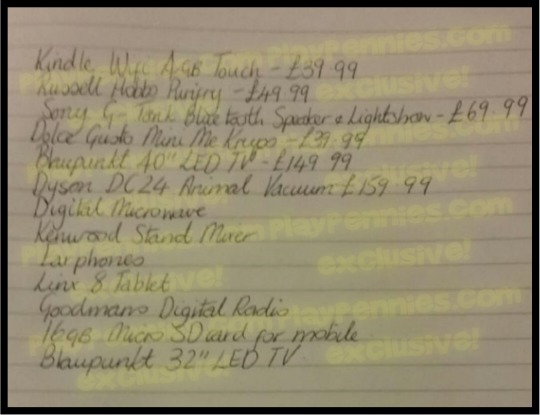 Kindle Wifi 4GB Touch - £39.99
Russell Hobbs Purifry - £49.99
Sony G-Tank Bluetooth Speaker & Lightshow - £69.99
Dolce Gusto Mini Me Krups - £39.99
Blaupunkt 40" LED TV - £149.99
Dyson DC24 Animal Vacuum £159.99
Digital Microwave
Kenwood Stand Mixer
Earphones
Linx 8 Tablet
Goodmans Digital Radio
16GB Micro SD card for mobile
Blaupunkt 32" LED TV
PlayPennies.com
exclusive!
PlayPennies.com
exclusive!
PlayPennies.com
exclusive!